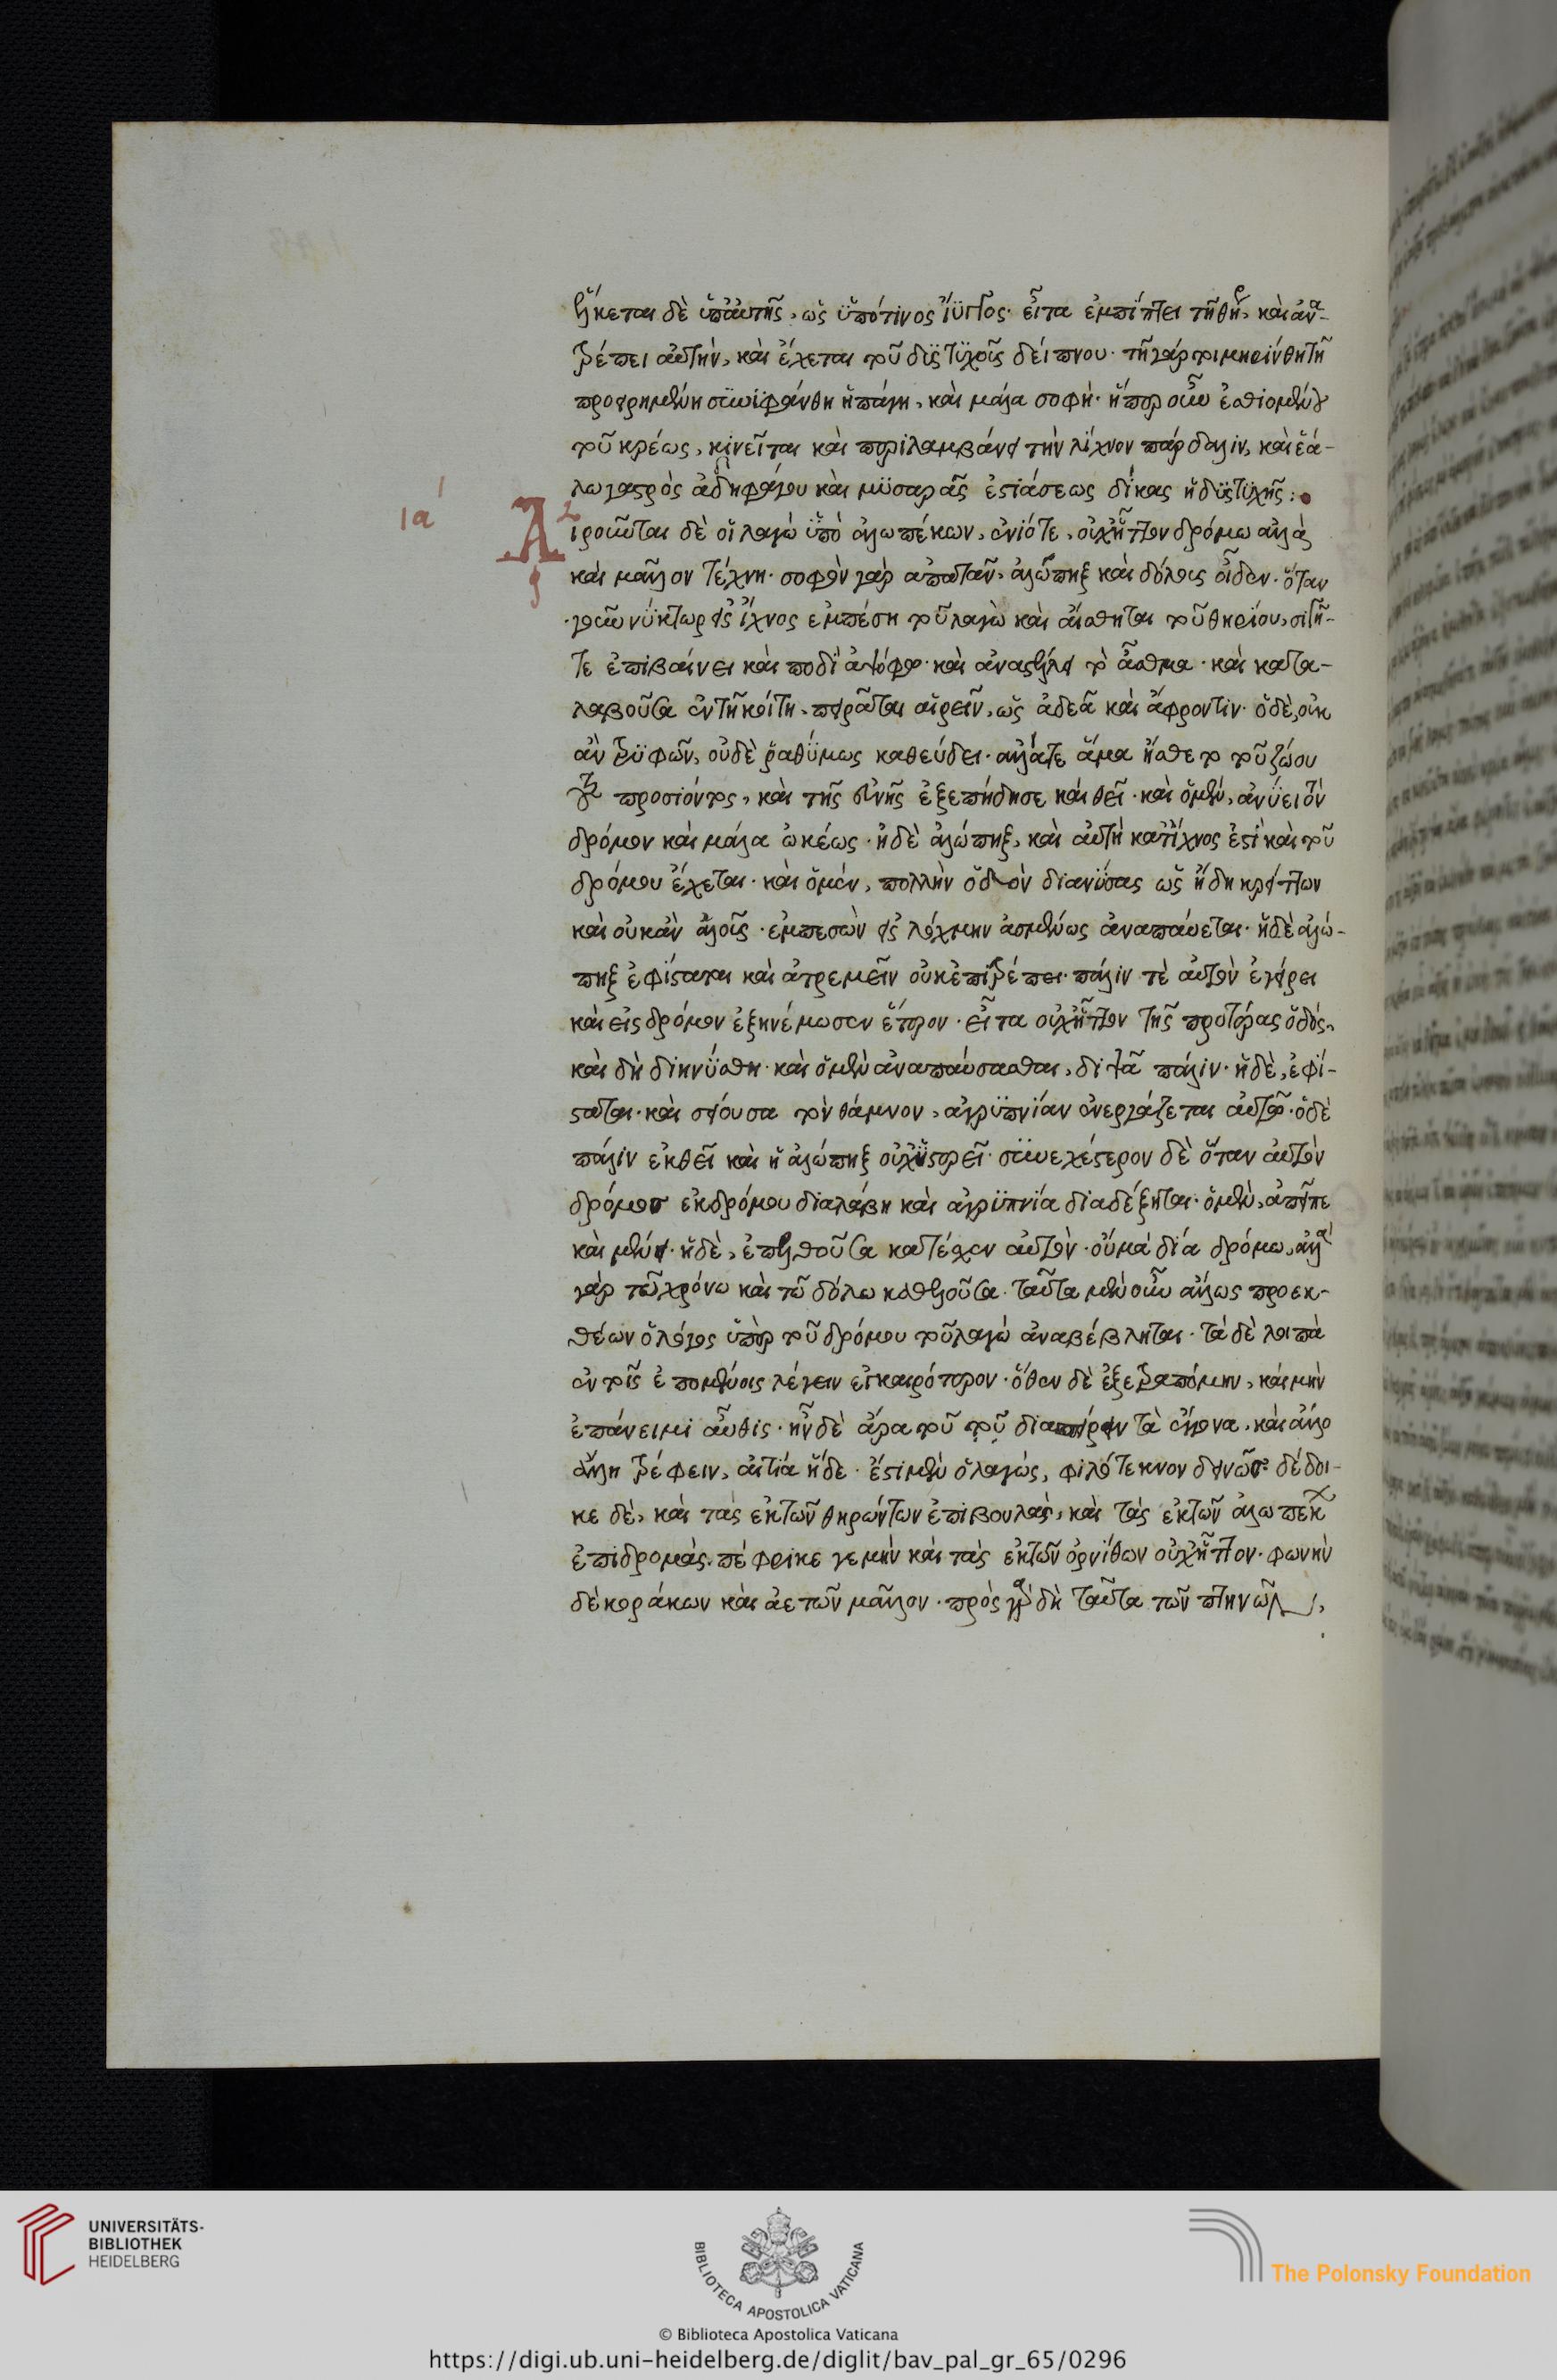 ἕλκεται δὲ ὑπ' αὐτῆς, ὡς ὑπό τινος ἴϋγγος· εἶτα ἐμπίπτει τῇ θήρᾳ, καὶ ἀνα-
τρέπει αὐτὴν, καὶ ἔχεται τοῦ δυστυχοῦς δείπνου· τῇ γάρ τοι μηρίνθῃ τῇ
προειρημένῃ συνυφάνθη ἡ πάγη, καὶ μάλα σοφή· ἥπερ οὖν ἐσθιομένου
τοῦ κρέως, κινεῖται καὶ περιλαμβάνει τὴν λίχνον πάρδαλιν, καὶ ἑά-
λω γαστρὸς ἀδηφάγου καὶ μυσαρᾶς ἑστιάσεως δίκας ἡ δυστυχής:
ια
Αἱροῦνται δὲ οἱ λαγῲ ὑπὸ ἀλωπέκων, ἐνίοτε, οὐχ ἧττον δρόμῳ ἀλλὰ
καὶ μᾶλλον τέχνῃ· σοφὸν γὰρ ἀπατᾶν, ἀλώπηξ καὶ δόλους οἶδεν· ὅταν
γοῦν νύκτωρ εἰς ἴχνος ἐμπέσῃ τοῦ λαγὼ καὶ αἴσθηται τοῦ θηρίου, σιγῇ
τε ἐπιβαίνει καὶ ποδὶ ἀψόφῳ· καὶ ἀναστέλλει τὸ ἆσθμα· καὶ κατα-
λαβοῦσα ἐν τῇ κοίτῃ, πειρᾶται αἱρεῖν, ὡς ἀδεᾶ καὶ ἄφροντιν· ὁ δὲ, οὐκ
ἂν τρυφῶν, οὐδὲ ῥᾳθύμως καθεύδει· ἀλλά τε ἅμα ᾔσθετο τοῦ ζῴου
προσιόντος, καὶ τῆς εὐνῆς ἐξεπήδησε καὶ θεῖ· καὶ ὁ μὲν, ἀνύει τὸν
δρόμον καὶ μάλα ὠκέως· ἡ δὲ ἀλώπηξ, καὶ αὐτὴ κατ' ἴχνος ἐστὶ καὶ τοῦ
δρόμου ἔχεται· καὶ ὁ μὲν, πολλὴν ὁδὸν διανύσας ὡς ἤδη κρείττων
καὶ οὐκ ἂν ἁλοὺς· ἐμπεσὼν εἰς λόχμην ἀσμένως ἀναπαύεται· ἡ δὲ ἀλώ-
πηξ ἐφίσταται καὶ ἀτρεμεῖν οὐκ ἐπιτρέπει· πάλιν τὲ αὐτὸν ἐγείρει
καὶ εἰς δρόμον ἐξηνέμωσεν ἕτερον· εἶτα οὐχ ἧττον τῆς προτέρας ὁδὸς,
καὶ δὴ διηνύσθη· καὶ ὁ μὲν ἀναπαύσασθαι, διψᾷ πάλιν· ἡ δὲ, ἐφί-
σταται· καὶ σείουσα τὸν θάμνον, ἀγρυπνίαν ἐνεργάζεται αὐτῷ· ὁ δὲ
πάλιν ἐκθεῖ καὶ ἡ ἀλώπηξ οὐχ ὑστερεῖ· συνεχέστερον δὲ ὅταν αὐτὸν
δρόμος ἐκ δρόμου διαλάβῃ καὶ ἀγρυπνία διαδέξηται· ὁ μὲν, ἀπεῖπε
καὶ μένει· ἡ δὲ, ἐπελθοῦσα κατέσχεν αὐτὸν· οὐ μὰ δία δρόμῳ, ἀλλὰ
γὰρ τῷ χρόνῳ καὶ τῷ δόλῳ καθελοῦσα· ταῦτα μὲν οὖν ἄλλως προεκ-
θέων ὁ λόγος ὑπὲρ τοῦ δρόμου τοῦ λαγὼ ἀναβέβληται· τὰ δὲ λοιπὰ
ἐν τοῖς ἑπομένοις λέγειν εὐκαιρότερον· ὅθεν δὲ ἐξετραπόμην, καὶ μὴν
ἐπάνειμι αὖθις· ἦν δὲ ἄρα τοῦ τοῦ διασπείρειν τὰ ἔγγονα, καὶ ἄλλο
ἄλλῃ τρέφειν, αἰτία ἥδε· ἔστι μὲν ὁ λαγὼς, φιλότεκνον δεινῶς δέδοι-
κε δὲ, καὶ τὰς ἐκ τῶν θηρώντων ἐπιβουλὰς, καὶ τὰς ἐκ τῶν ἀλωπέκων
ἐπιδρομάς· πέφρικε γε μὴν καὶ τὰς ἐκ τῶν ὀρνίθων οὐχ ἧττον· φωνὴν
δὲ κοράκων καὶ ἀετῶν μᾶλλον· πρὸς γὰρ δὴ ταῦτα τῶν πτηνῶν,
UNIVERSITÄTS-
BIBLIOTHEK
HEIDELBERG
BIBLIOTECA APOSTOLICA VATICANA
The Polonsky Foundation
© Biblioteca Apostolica Vaticana
https://digi.ub.uni-heidelberg.de/diglit/bav_pal_gr_65/0296